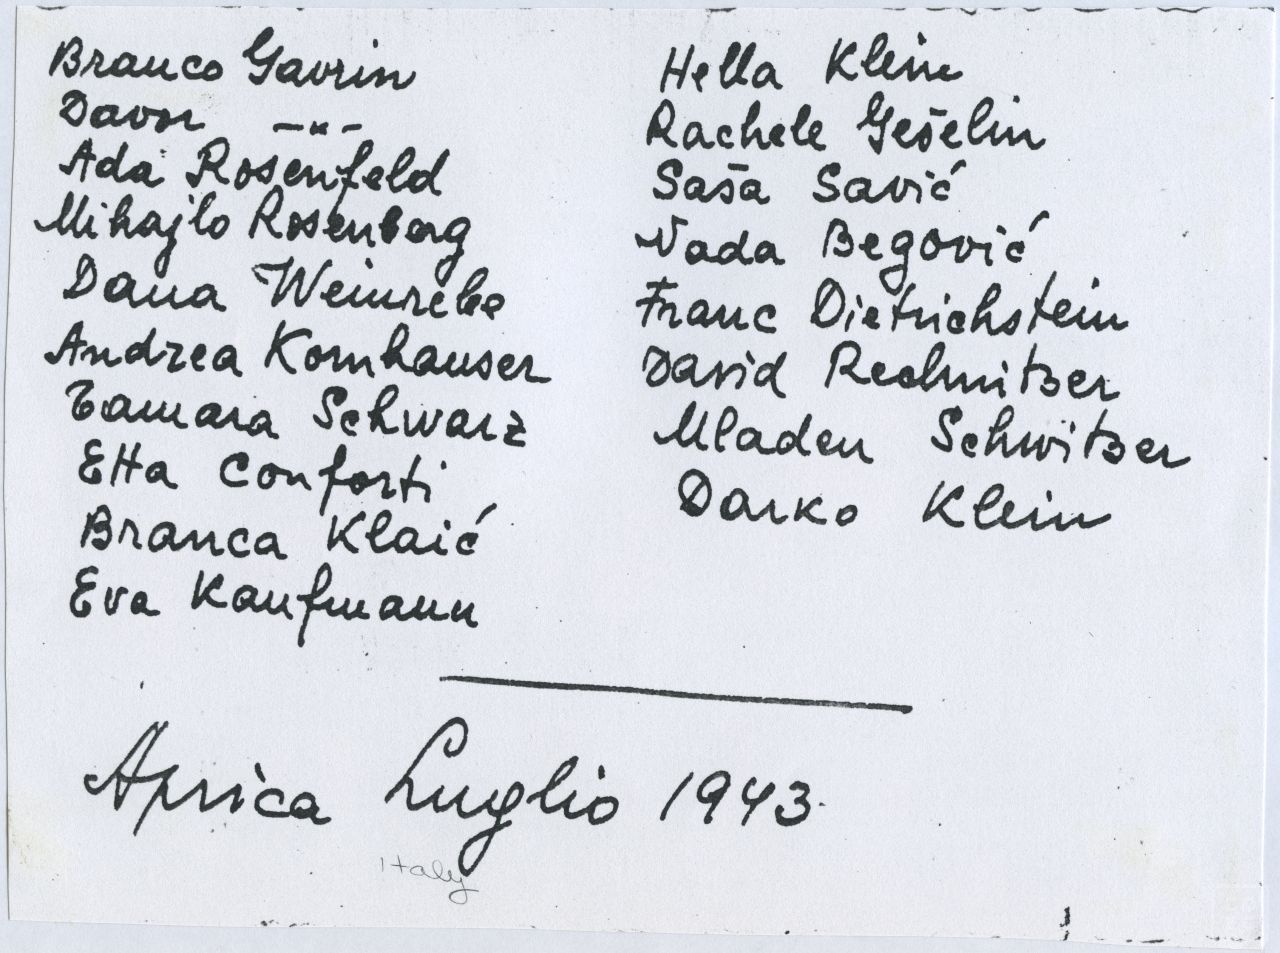 Branco Gavrin
Davor —"—
Ada Rosenfeld
Mihajlo Rosenberg
Dana Weinrebe
Andrea Kornhauser
Tamara Schwarz
Etta Conforti
Branca Klaić
Eva Kaufmann
Hella Klein
Rachele Gešelin
Saša Savić
Nada Begović
Franc Dietrichstein
David Rechnitzer
Mladen Schwitzer
Darko Klein
Aprica Luglio 1943.
Italy